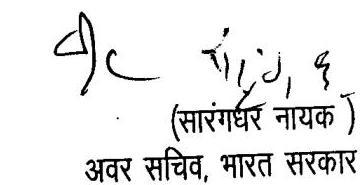 (सारंगधर नायक )
अवर सचिव, भारत सरकार